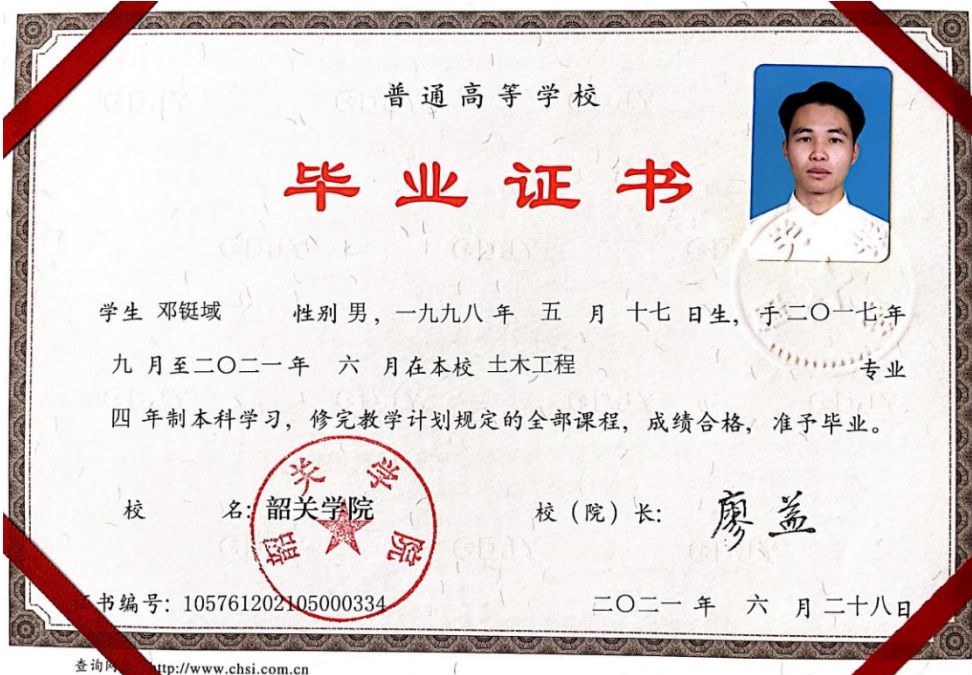 普通高等学校
毕业证书
学生 邓铤域 性别 男，一九九八 年 五 月 十七 日生，于二〇一七年
九 月至二〇二一年 六 月在本校 土木工程 专业
四 年制本科学习，修完教学计划规定的全部课程，成绩合格，准予毕业。
校 名：韶关学院 校（院）长：廖益
韶关学院
书编号：105761202105000334 二〇二一 年 六 月 二十八日
查询网 http://www.chsi.com.cn